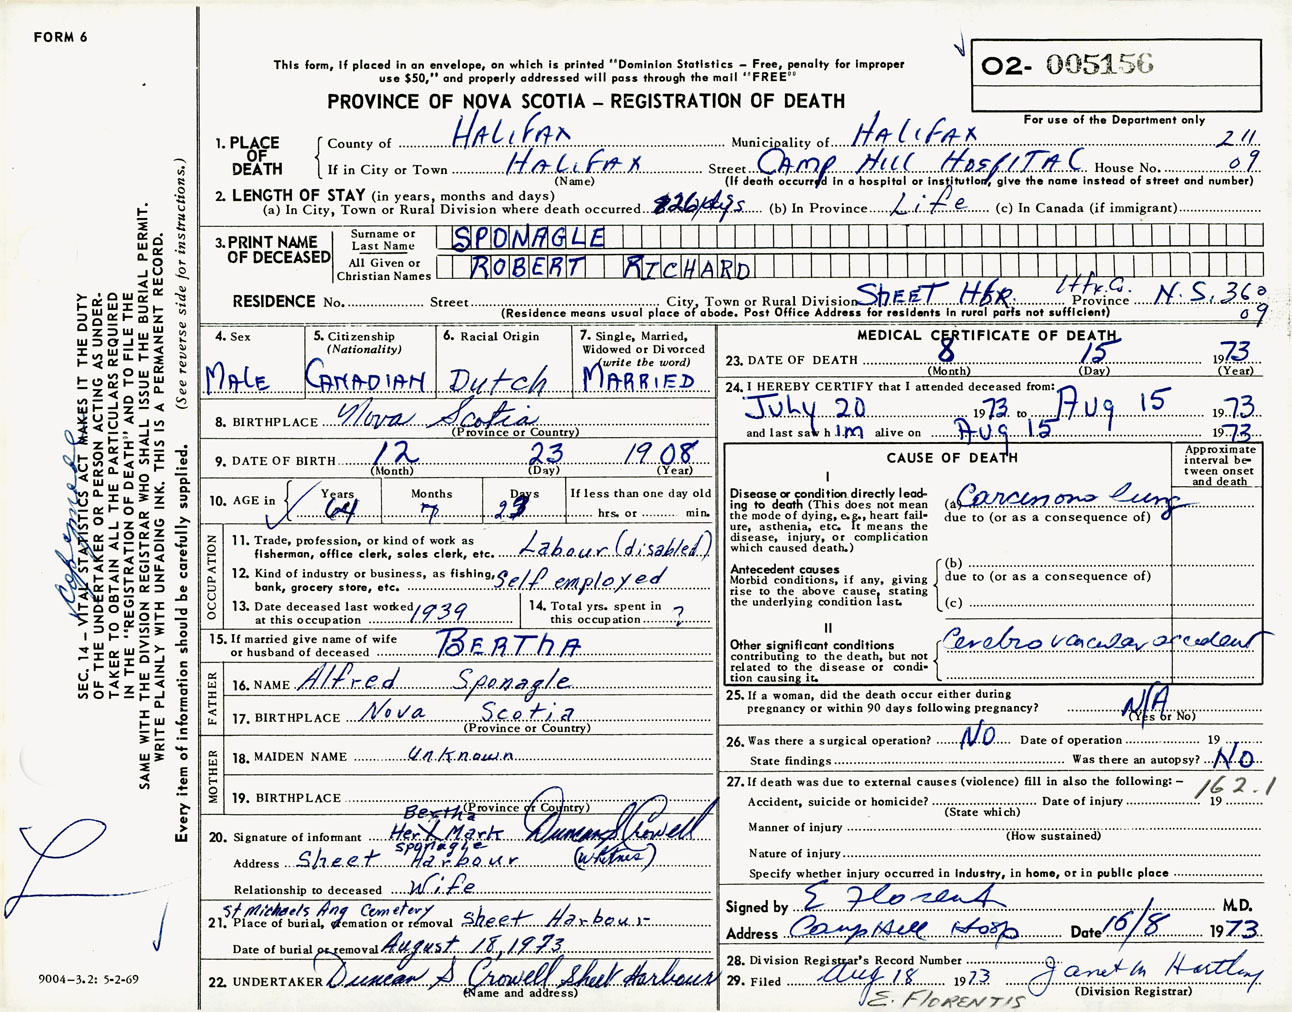 FORM 6
This form, if placed in an envelope, on which is printed "Dominion Statistics – Free, penalty for improper
use $50," and properly addressed will pass through the mail "FREE"
O2- 005156
For use of the Department only
PROVINCE OF NOVA SCOTIA – REGISTRATION OF DEATH
1. PLACE OF DEATH
County of HALIFAX Municipality of HALIFAX 211
If in City or Town HALIFAX Street CAMP HILL HOSPITAL House No. 09
(Name) (If death occurred in a hospital or institution, give the name instead of street and number)
2. LENGTH OF STAY (in years, months and days)
(a) In City, Town or Rural Division where death occurred 26 days (b) In Province Life (c) In Canada (if immigrant)
3. PRINT NAME OF DECEASED
Surname or Last Name SPONAGLE
All Given or Christian Names ROBERT RICHARD
RESIDENCE No. Street City, Town or Rural Division SHEET HBR. Hfx. Co. Province N.S. 360
(Residence means usual place of abode. Post Office Address for residents in rural parts not sufficient) 09
4. Sex MALE
5. Citizenship (Nationality) CANADIAN
6. Racial Origin Dutch
7. Single, Married, Widowed or Divorced (write the word) MARRIED
8. BIRTHPLACE Nova Scotia
(Province or Country)
9. DATE OF BIRTH 12 23 1908
(Month) (Day) (Year)
10. AGE in Years 64 Months 7 Days 23 If less than one day old
hrs. or min.
OCCUPATION
11. Trade, profession, or kind of work as
fisherman, office clerk, sales clerk, etc. Labour (disabled)
12. Kind of industry or business, as fishing,
bank, grocery store, etc. Self employed
13. Date deceased last worked
at this occupation 1939
14. Total yrs. spent in
this occupation ?
15. If married give name of wife
or husband of deceased BERTHA
FATHER
16. NAME Alfred Sponagle
17. BIRTHPLACE Nova Scotia
(Province or Country)
MOTHER
18. MAIDEN NAME unknown
19. BIRTHPLACE
(Province or Country)
Bertha
20. Signature of informant Her X Mark Duncan S Crowell
Sponagle
Address Sheet Harbour (Witness)
Relationship to deceased Wife
St Michaels Ang Cemetery
21. Place of burial, cremation or removal Sheet Harbour
Date of burial or removal August 18, 1973
22. UNDERTAKER Duncan S Crowell Sheet Harbour
(Name and address)
MEDICAL CERTIFICATE OF DEATH
23. DATE OF DEATH 8 15 1973
(Month) (Day) (Year)
24. I HEREBY CERTIFY that I attended deceased from:
July 20 1973 to Aug 15 1973
and last saw him alive on Aug 15 1973
CAUSE OF DEATH
Approximate interval between onset and death
I
Disease or condition directly lead-
ing to death (This does not mean
the mode of dying, e.g., heart fail-
ure, asthenia, etc. It means the
disease, injury, or complication
which caused death.)
(a) Carcinoma lung
due to (or as a consequence of)
Antecedent causes
Morbid conditions, if any, giving
rise to the above cause, stating
the underlying condition last.
(b)
due to (or as a consequence of)
(c)
II
Other significant conditions
contributing to the death, but not
related to the disease or condi-
tion causing it.
Cerebro vascular accident
25. If a woman, did the death occur either during
pregnancy or within 90 days following pregnancy? N/A
(Yes or No)
26. Was there a surgical operation? NO Date of operation 19
State findings Was there an autopsy? NO
27. If death was due to external causes (violence) fill in also the following: –
162.1
Accident, suicide or homicide? Date of injury 19
(State which)
Manner of injury
(How sustained)
Nature of injury
Specify whether injury occurred in industry, in home, or in public place
Signed by E Florent M.D.
Address Camp Hill Hosp Date 16/8 1973
28. Division Registrar's Record Number
29. Filed Aug 18 1973 Janet M Hartling
(Division Registrar)
E. FLORENTIS
SEC. 14 – VITAL STATISTICS ACT MAKES IT THE DUTY
OF THE UNDERTAKER OR PERSON ACTING AS UNDER-
TAKER TO OBTAIN ALL THE PARTICULARS REQUIRED
IN THE "REGISTRATION OF DEATH" AND TO FILE THE
SAME WITH THE DIVISION REGISTRAR WHO SHALL ISSUE THE BURIAL PERMIT.
WRITE PLAINLY WITH UNFADING INK. THIS IS A PERMANENT RECORD.
Every item of information should be carefully supplied. (See reverse side for instructions.)
9004-3.2: 5-2-69